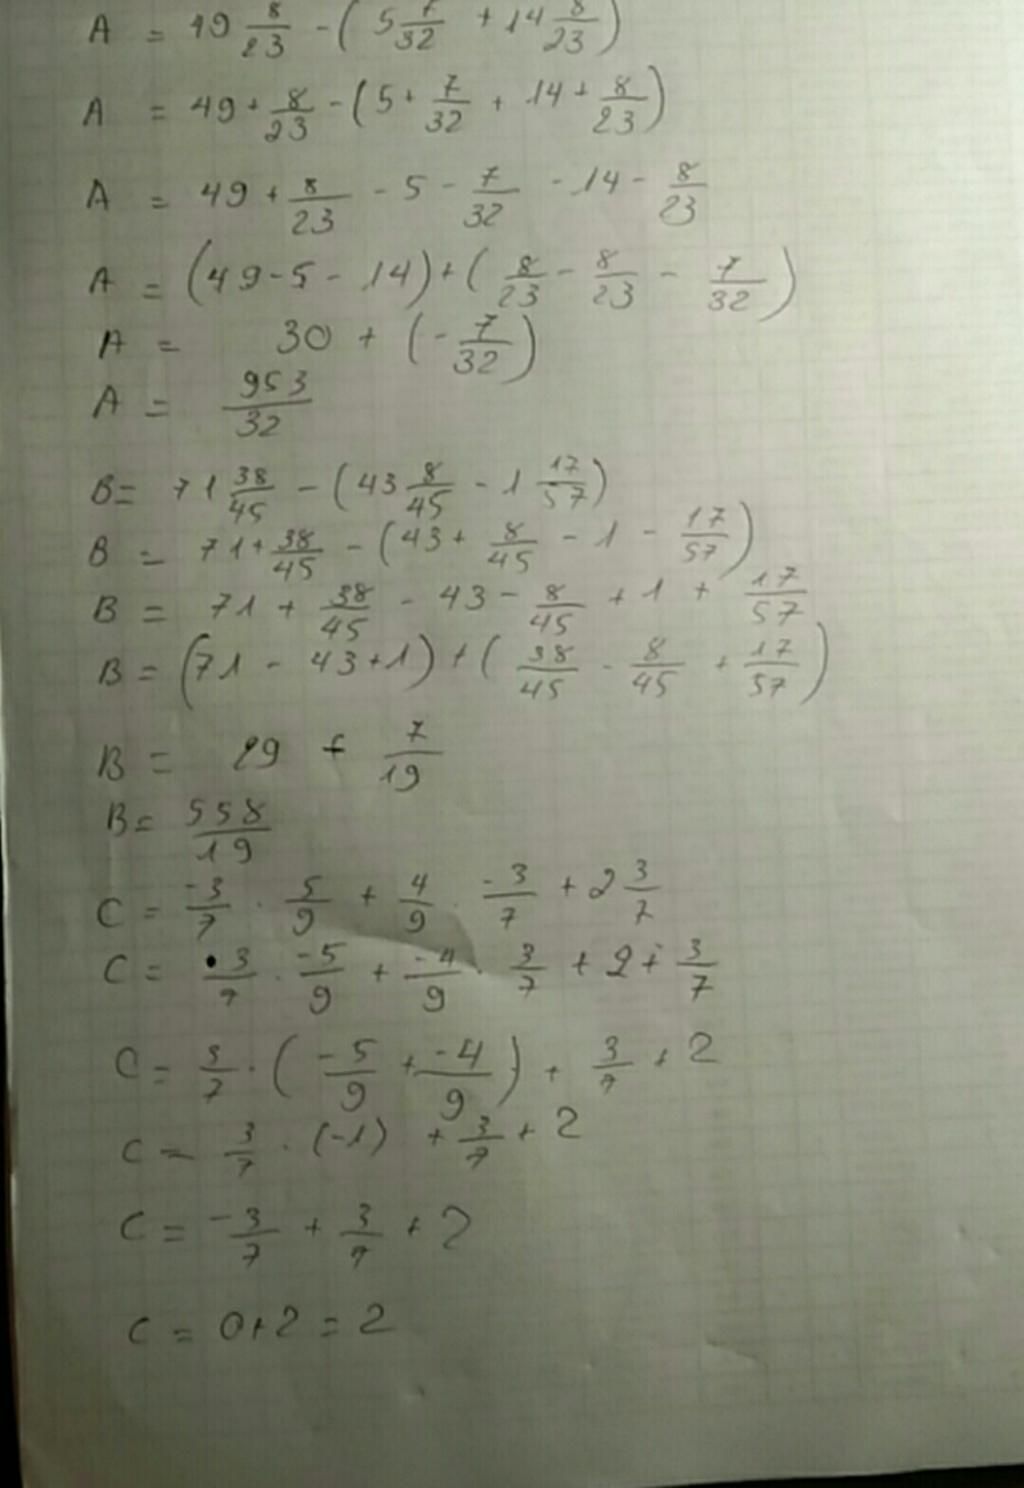 A = 49 8/23 - ( 5 7/32 + 14 8/23 )
A = 49 + 8/23 - ( 5 + 7/32 + 14 + 8/23 )
A = 49 + 8/23 - 5 - 7/32 - 14 - 8/23
A = ( 49 - 5 - 14 ) + ( 8/23 - 8/23 - 7/32 )
A = 30 + ( - 7/32 )
A = 953/32
B = 71 38/45 - ( 43 8/45 - 1 17/57 )
B = 71 + 38/45 - ( 43 + 8/45 - 1 - 17/57 )
B = 71 + 38/45 - 43 - 8/45 + 1 + 17/57
B = ( 71 - 43 + 1 ) + ( 38/45 - 8/45 + 17/57 )
B = 29 + 7/19
B = 558/19
C = -3/7 . 5/9 + 4/9 . -3/7 + 2 3/7
C = 3/7 . -5/9 + -4/9 . 3/7 + 2 + 3/7
C = 3/7 . ( -5/9 + -4/9 ) + 3/7 + 2
C = 3/7 . (-1) + 3/7 + 2
C = -3/7 + 3/7 + 2
C = 0 + 2 = 2